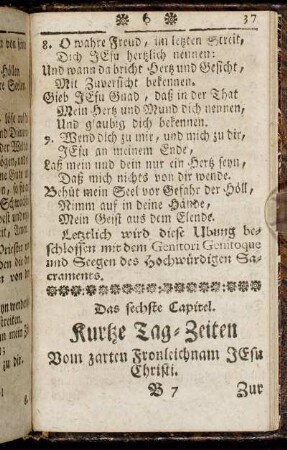 6 37
8. O wahre Freud, im letzten Streit,
Dich JEsu hertzlich nennen:
Und wann da bricht Hertz und Gesicht,
Mit Zuversicht bekennen.
Gieb JEsu Gnad, daß in der That
Mein Hertz und Mund dich nennen,
Und glaubig dich bekennen.
9. Wend dich zu mir, und mich zu dir,
JEsu an meinem Ende,
Laß mein und dein nur ein Hertz seyn,
Daß mich nichts von dir wende.
Behüt mein Seel vor Gefahr der Höll,
Nimm auf in deine Hände,
Mein Geist aus dem Elende.
Letztlich wird diese Ubung be-
schlossen mit dem Genitori Genitoque
und Seegen des Hochwürdigen Sa-
craments.
Das sechste Capitel.
Kurtze Tag-Zeiten
Vom zarten Fronleichnam JEsu
Christi.
B 7 Zur